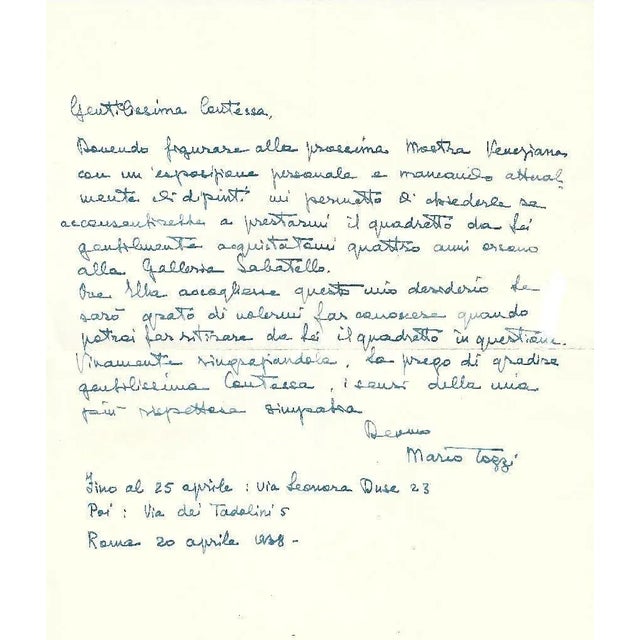 Gentilissima Contessa,
Dovendo figurare alla prossima Mostra Veneziana
con un'esposizione personale e mancando attual-
mente di dipinti mi permetto di chiederle se
acconsentirebbe a prestarmi il quadretto da Lei
gentilmente acquistatomi quattro anni orsono
alla Galleria Sabatello.
Ove Ella accogliesse questo mio desiderio Le
sarò grato di volermi far conoscere quando
potrei far ritirare da Lei il quadretto in questione.
Vivamente ringraziandola, La prego di gradire
gentilissima Contessa, i sensi della mia
più rispettosa simpatia
Devmo
Mario Tozzi
Fino al 25 aprile : via Leonora Duse 23
Poi : Via dei Tadolini 5
Roma 20 aprile 1938 -